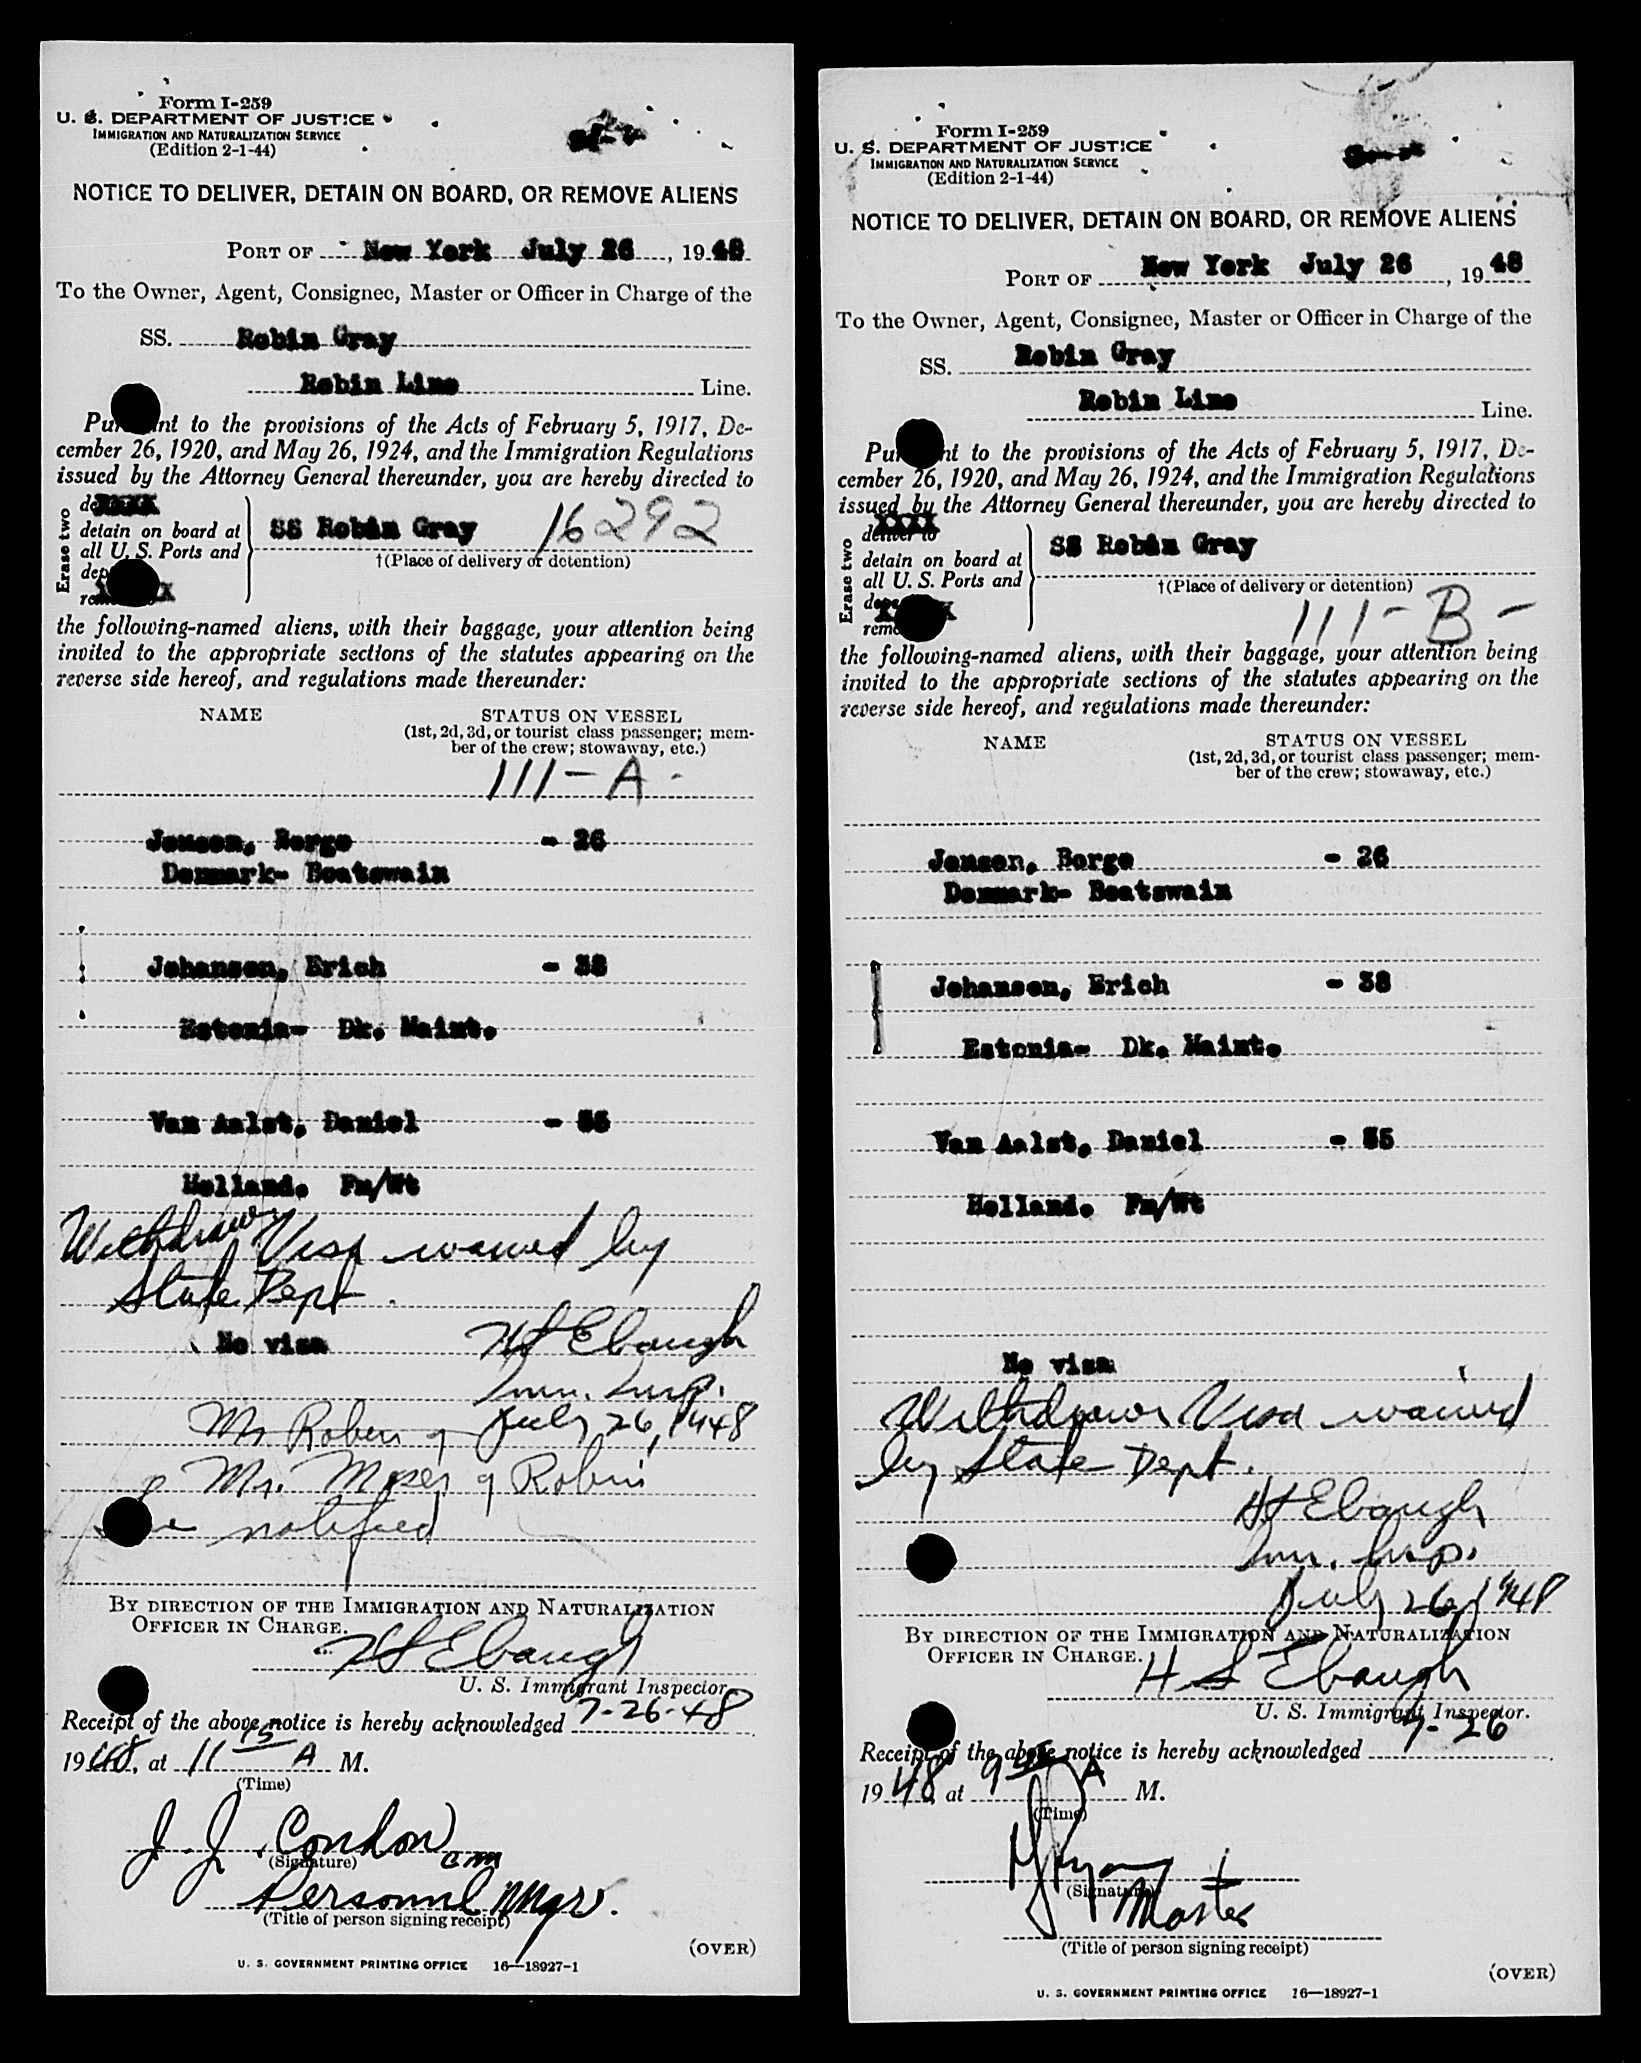 Form I-259
U. S. DEPARTMENT OF JUSTICE
IMMIGRATION AND NATURALIZATION SERVICE
(Edition 2-1-44)
NOTICE TO DELIVER, DETAIN ON BOARD, OR REMOVE ALIENS
PORT OF New York July 26, 1948
To the Owner, Agent, Consignee, Master or Officer in Charge of the
SS. Robin Gray
Robin Line Line.
to the provisions of the Acts of February 5, 1917, De-
cember 26, 1920, and May 26, 1924, and the Immigration Regulations
issued by the Attorney General thereunder, you are hereby directed to
Erase two
detain on board at
all U. S. Ports and
SS Robin Gray 16292
†(Place of delivery or detention)
the following-named aliens, with their baggage, your attention being
invited to the appropriate sections of the statutes appearing on the
reverse side hereof, and regulations made thereunder:
NAME STATUS ON VESSEL
(1st, 2d, 3d, or tourist class passenger; mem-
ber of the crew; stowaway, etc.)
111-A-
Jensen, Borge - 26
Denmark- Boatswain
Johansen, Erich - 38
Estonia- Dk. Maint.
Van Aalst, Daniel - 35
Holland. Fm/Wt
Withdrawn Visa waived by
State Dept.
No visa HS Ebaugh
Imm. Insp.
July 26, 1948
Mr. Moser of Robin
notified
BY DIRECTION OF THE IMMIGRATION AND NATURALIZATION
OFFICER IN CHARGE.
HS Ebaugh
U. S. Immigrant Inspector.
Receipt of the above notice is hereby acknowledged 7-26-48
1948, at 11 15 A M.
(Time)
J. J. Condon
(Signature)
Personnel Mgr.
(Title of person signing receipt)
(OVER)
U. S. GOVERNMENT PRINTING OFFICE 16—18927-1
Form I-259
U. S. DEPARTMENT OF JUSTICE
IMMIGRATION AND NATURALIZATION SERVICE
(Edition 2-1-44)
NOTICE TO DELIVER, DETAIN ON BOARD, OR REMOVE ALIENS
PORT OF New York July 26, 1948
To the Owner, Agent, Consignee, Master or Officer in Charge of the
SS. Robin Gray
Robin Line Line.
to the provisions of the Acts of February 5, 1917, De-
cember 26, 1920, and May 26, 1924, and the Immigration Regulations
issued by the Attorney General thereunder, you are hereby directed to
Erase two
deliver to
detain on board at
all U. S. Ports and
SS Robin Gray
†(Place of delivery or detention)
111-B-
the following-named aliens, with their baggage, your attention being
invited to the appropriate sections of the statutes appearing on the
reverse side hereof, and regulations made thereunder:
NAME STATUS ON VESSEL
(1st, 2d, 3d, or tourist class passenger; mem-
ber of the crew; stowaway, etc.)
Jensen, Borge - 26
Denmark- Boatswain
Johansen, Erich - 38
Estonia- Dk. Maint.
Van Aalst, Daniel - 35
Holland. Fm/Wt
No visa
Withdrawn Visa waived
by State Dept.
HS Ebaugh
Imm. Insp.
July 26, 1948
BY DIRECTION OF THE IMMIGRATION AND NATURALIZATION
OFFICER IN CHARGE.
H S Ebaugh
U. S. Immigrant Inspector.
Receipt of the above notice is hereby acknowledged 7-26
1948 at 9 A M.
(Time)
(Signature)
Master
(Title of person signing receipt)
(OVER)
U. S. GOVERNMENT PRINTING OFFICE 16—18927-1